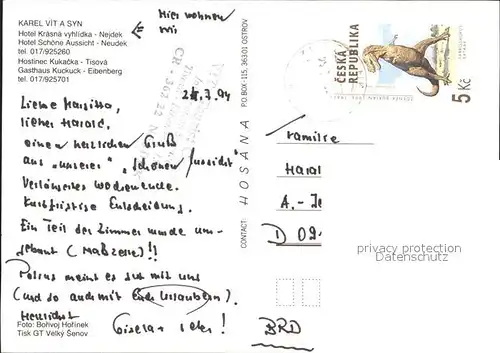 KAREL VÍT A SYN
Hotel Krásná vyhlídka - Nejdek
Hotel Schöne Aussicht - Neudek
tel. 017/925260
Hostinec Kukačka - Tisová
Gasthaus Kuckuck - Eibenberg
tel. 017/925701
Hier wohnen
wir
28.7.94
Liebe
lieber Harald,
einen herzlichen Gruß
aus "unserer" "Schönen Aussicht"
Verlängertes Wochenende.
Kurzfristige Entscheidung.
Ein Teil der Zimmer wurde um-
gebaut (Naßzelle)!!
Petrus meint es gut mit uns
(und so auch mit Euch Urlaubern).
Herzlichst
Gisela + Peter!
Foto: Bořivoj Hořínek
Tisk GT Velký Šenov
CONTACT: HOSANA P.O. BOX - 115, 363 01 OSTROV
ČESKÁ
REPUBLIKA
5 Kč
Familie
Haral
A.-Je
D 09
BRD
privacy protection
Datenschutz